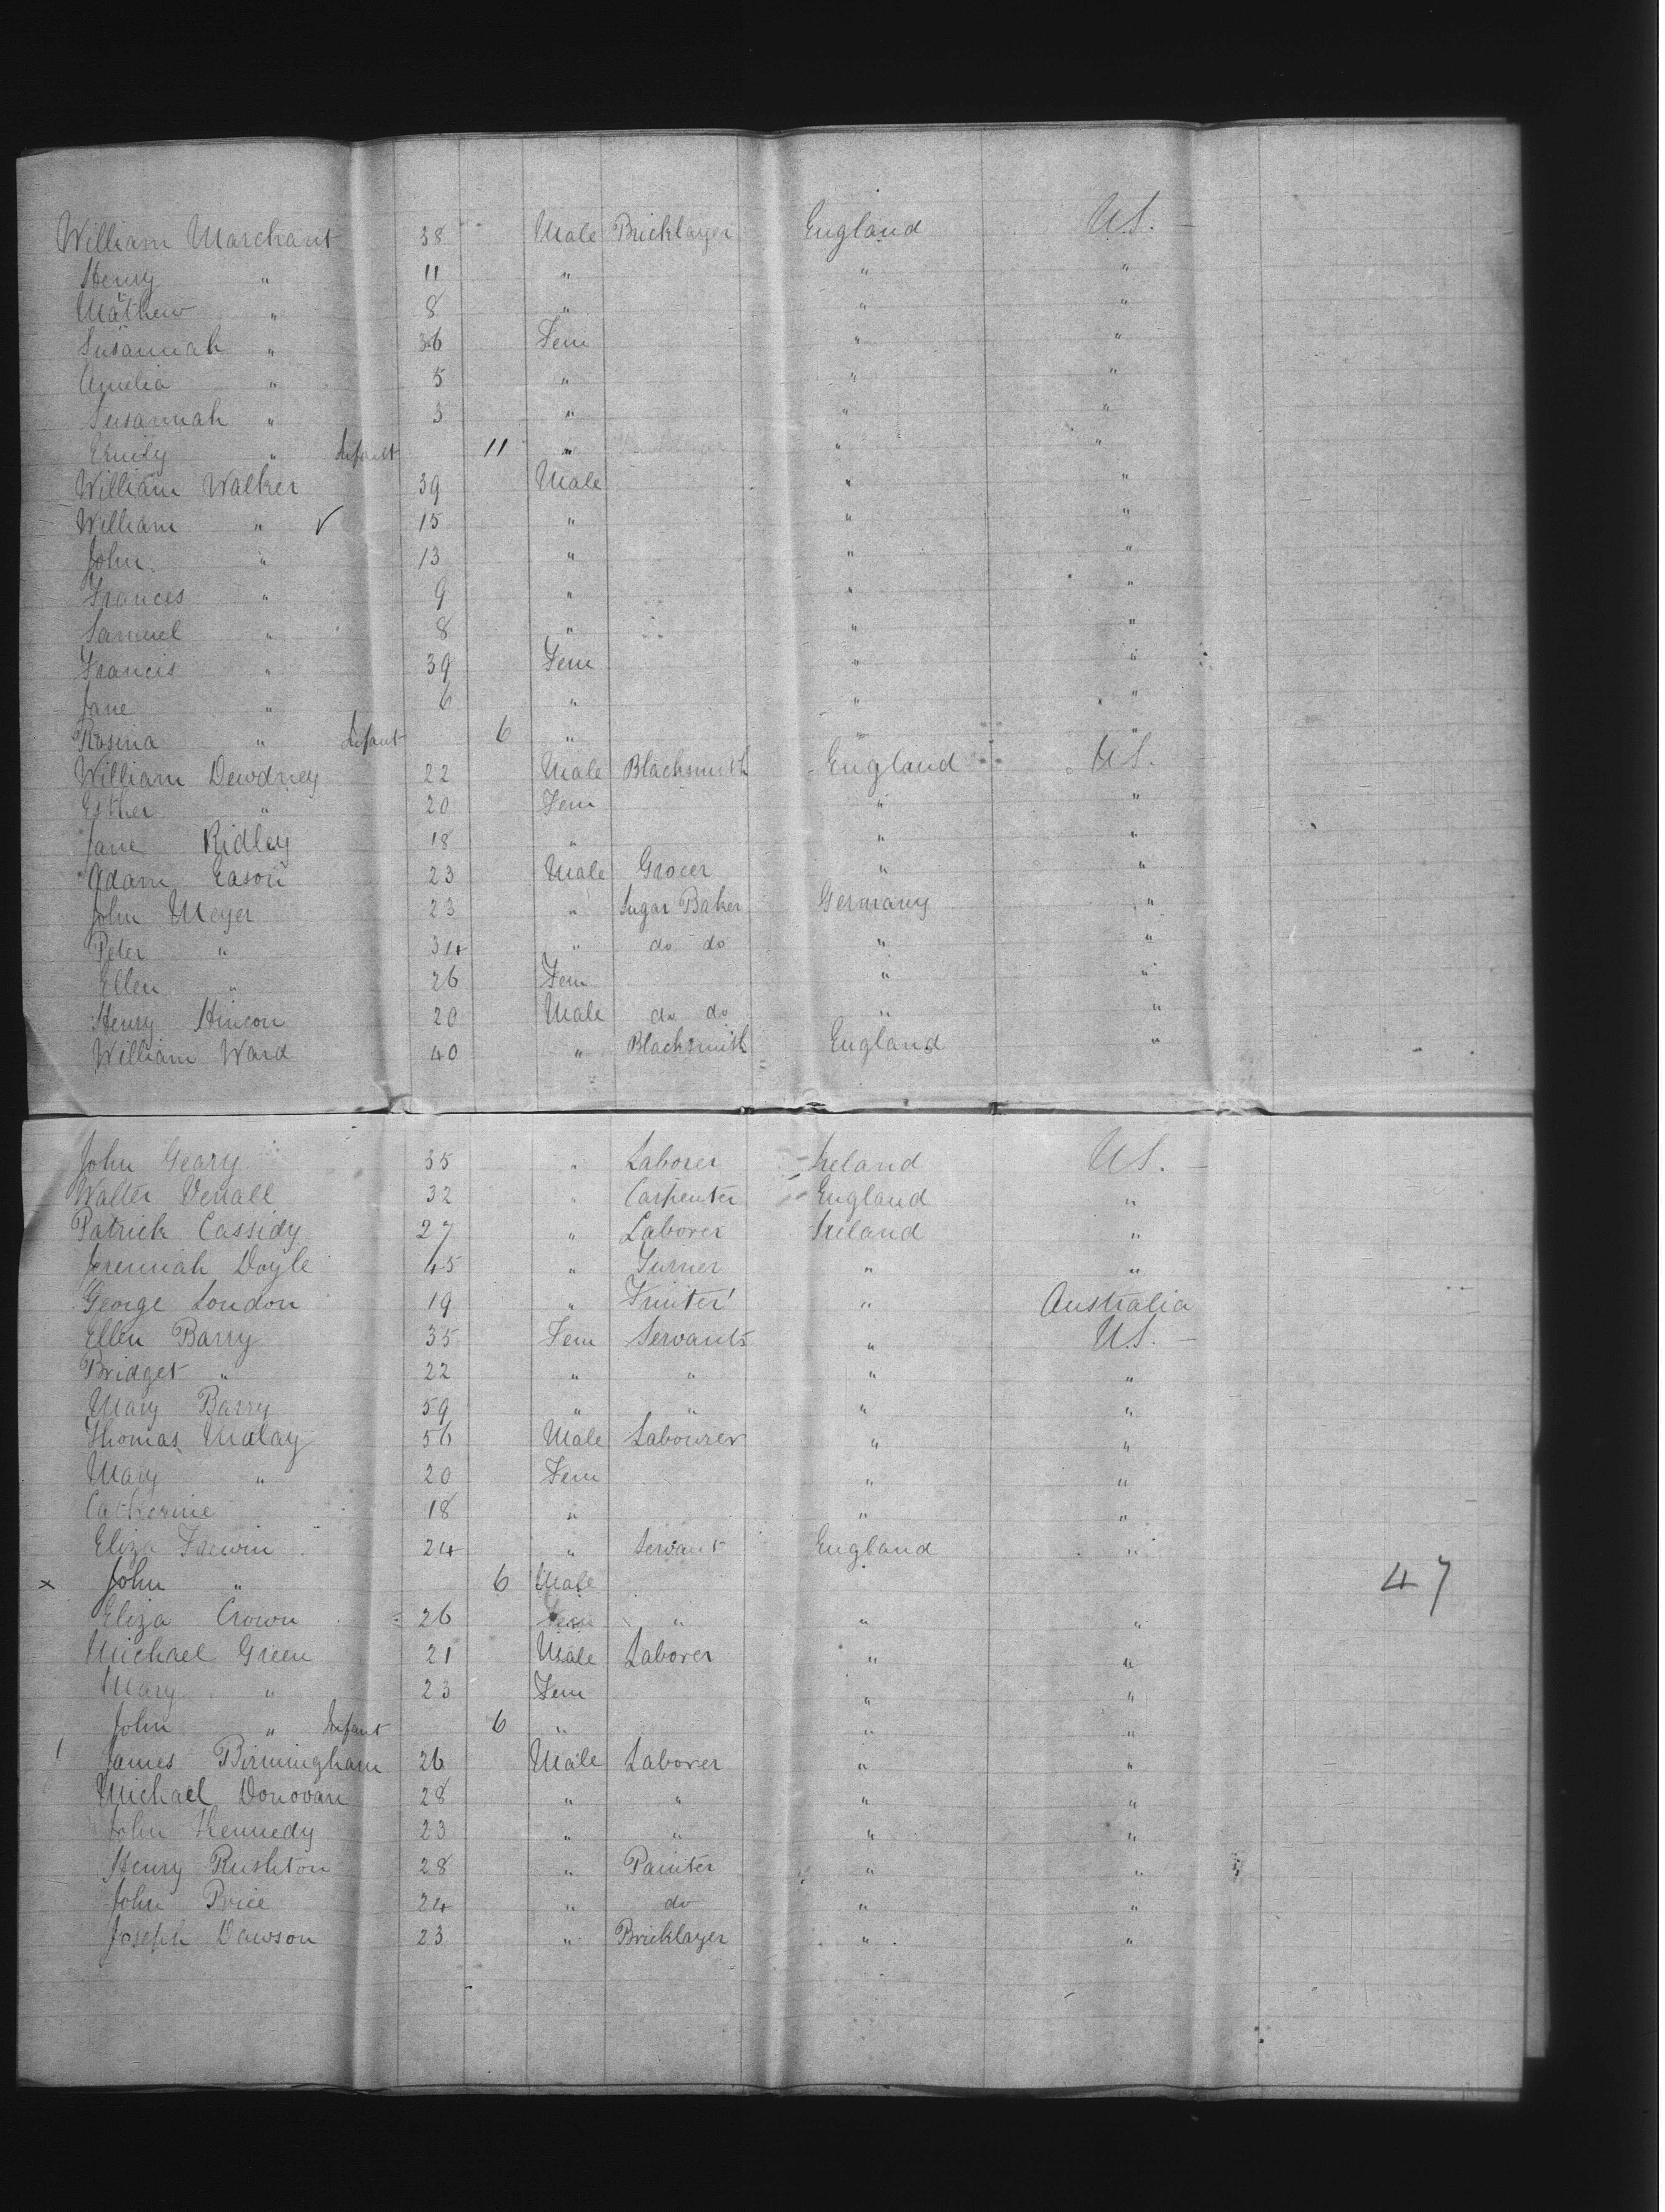 William Marchant 38 Male Bricklayer England U.S. -
Henry " 11 " " "
Mathew " 8 " " "
Susannah " 36 Fem " "
Amelia " 5 " " "
Susannah " 3 " " "
Emily " Infant 11 " " "
William Walker 39 Male " "
William " ✓ 15 " " "
John " 13 " " "
Frances " 9 " " "
Samuel " 8 " " "
Francis " 39 Fem " "
Jane " 6 " " "
Rosina " Infant 6 " " "
William Dewdney 22 Male Blacksmith England U.S.
Esther " 20 Fem " "
Jane Ridley 18 " " "
Adam Eason 23 Male Grocer " "
John Meyer 23 " Sugar Baker Germany "
Peter " 34 " do do " "
Ellen " 26 Fem " "
Henry Hincon 20 Male do do " "
William Ward 40 " Blacksmith England "
John Geary 35 " Laborer Ireland U.S. -
Walter Verrall 32 " Carpenter England "
Patrick Cassidy 27 " Laborer Ireland "
Jeremiah Doyle 45 " Turner " "
George London 19 " " Australia
Ellen Barry 35 Fem Servants " U.S. -
Bridget " 22 " " " "
Mary Barry 59 " " " "
Thomas Malay 56 Male Labourer " "
Mary " 20 Fem " "
Catherine 18 " " "
Eliza Frewin 24 " Servant England "
x John " 6 Male 47
Eliza Crown 26 Fem " " "
Michael Green 21 Male Laborer " "
Mary " 23 Fem " "
John " Infant 6 " " "
James Birmingham 26 Male Laborer " "
Michael Donovan 28 " " " "
John Kennedy 23 " " " "
Henry Rushton 28 " Painter " "
John Price 24 " do " "
Joseph Dawson 23 " Bricklayer " "